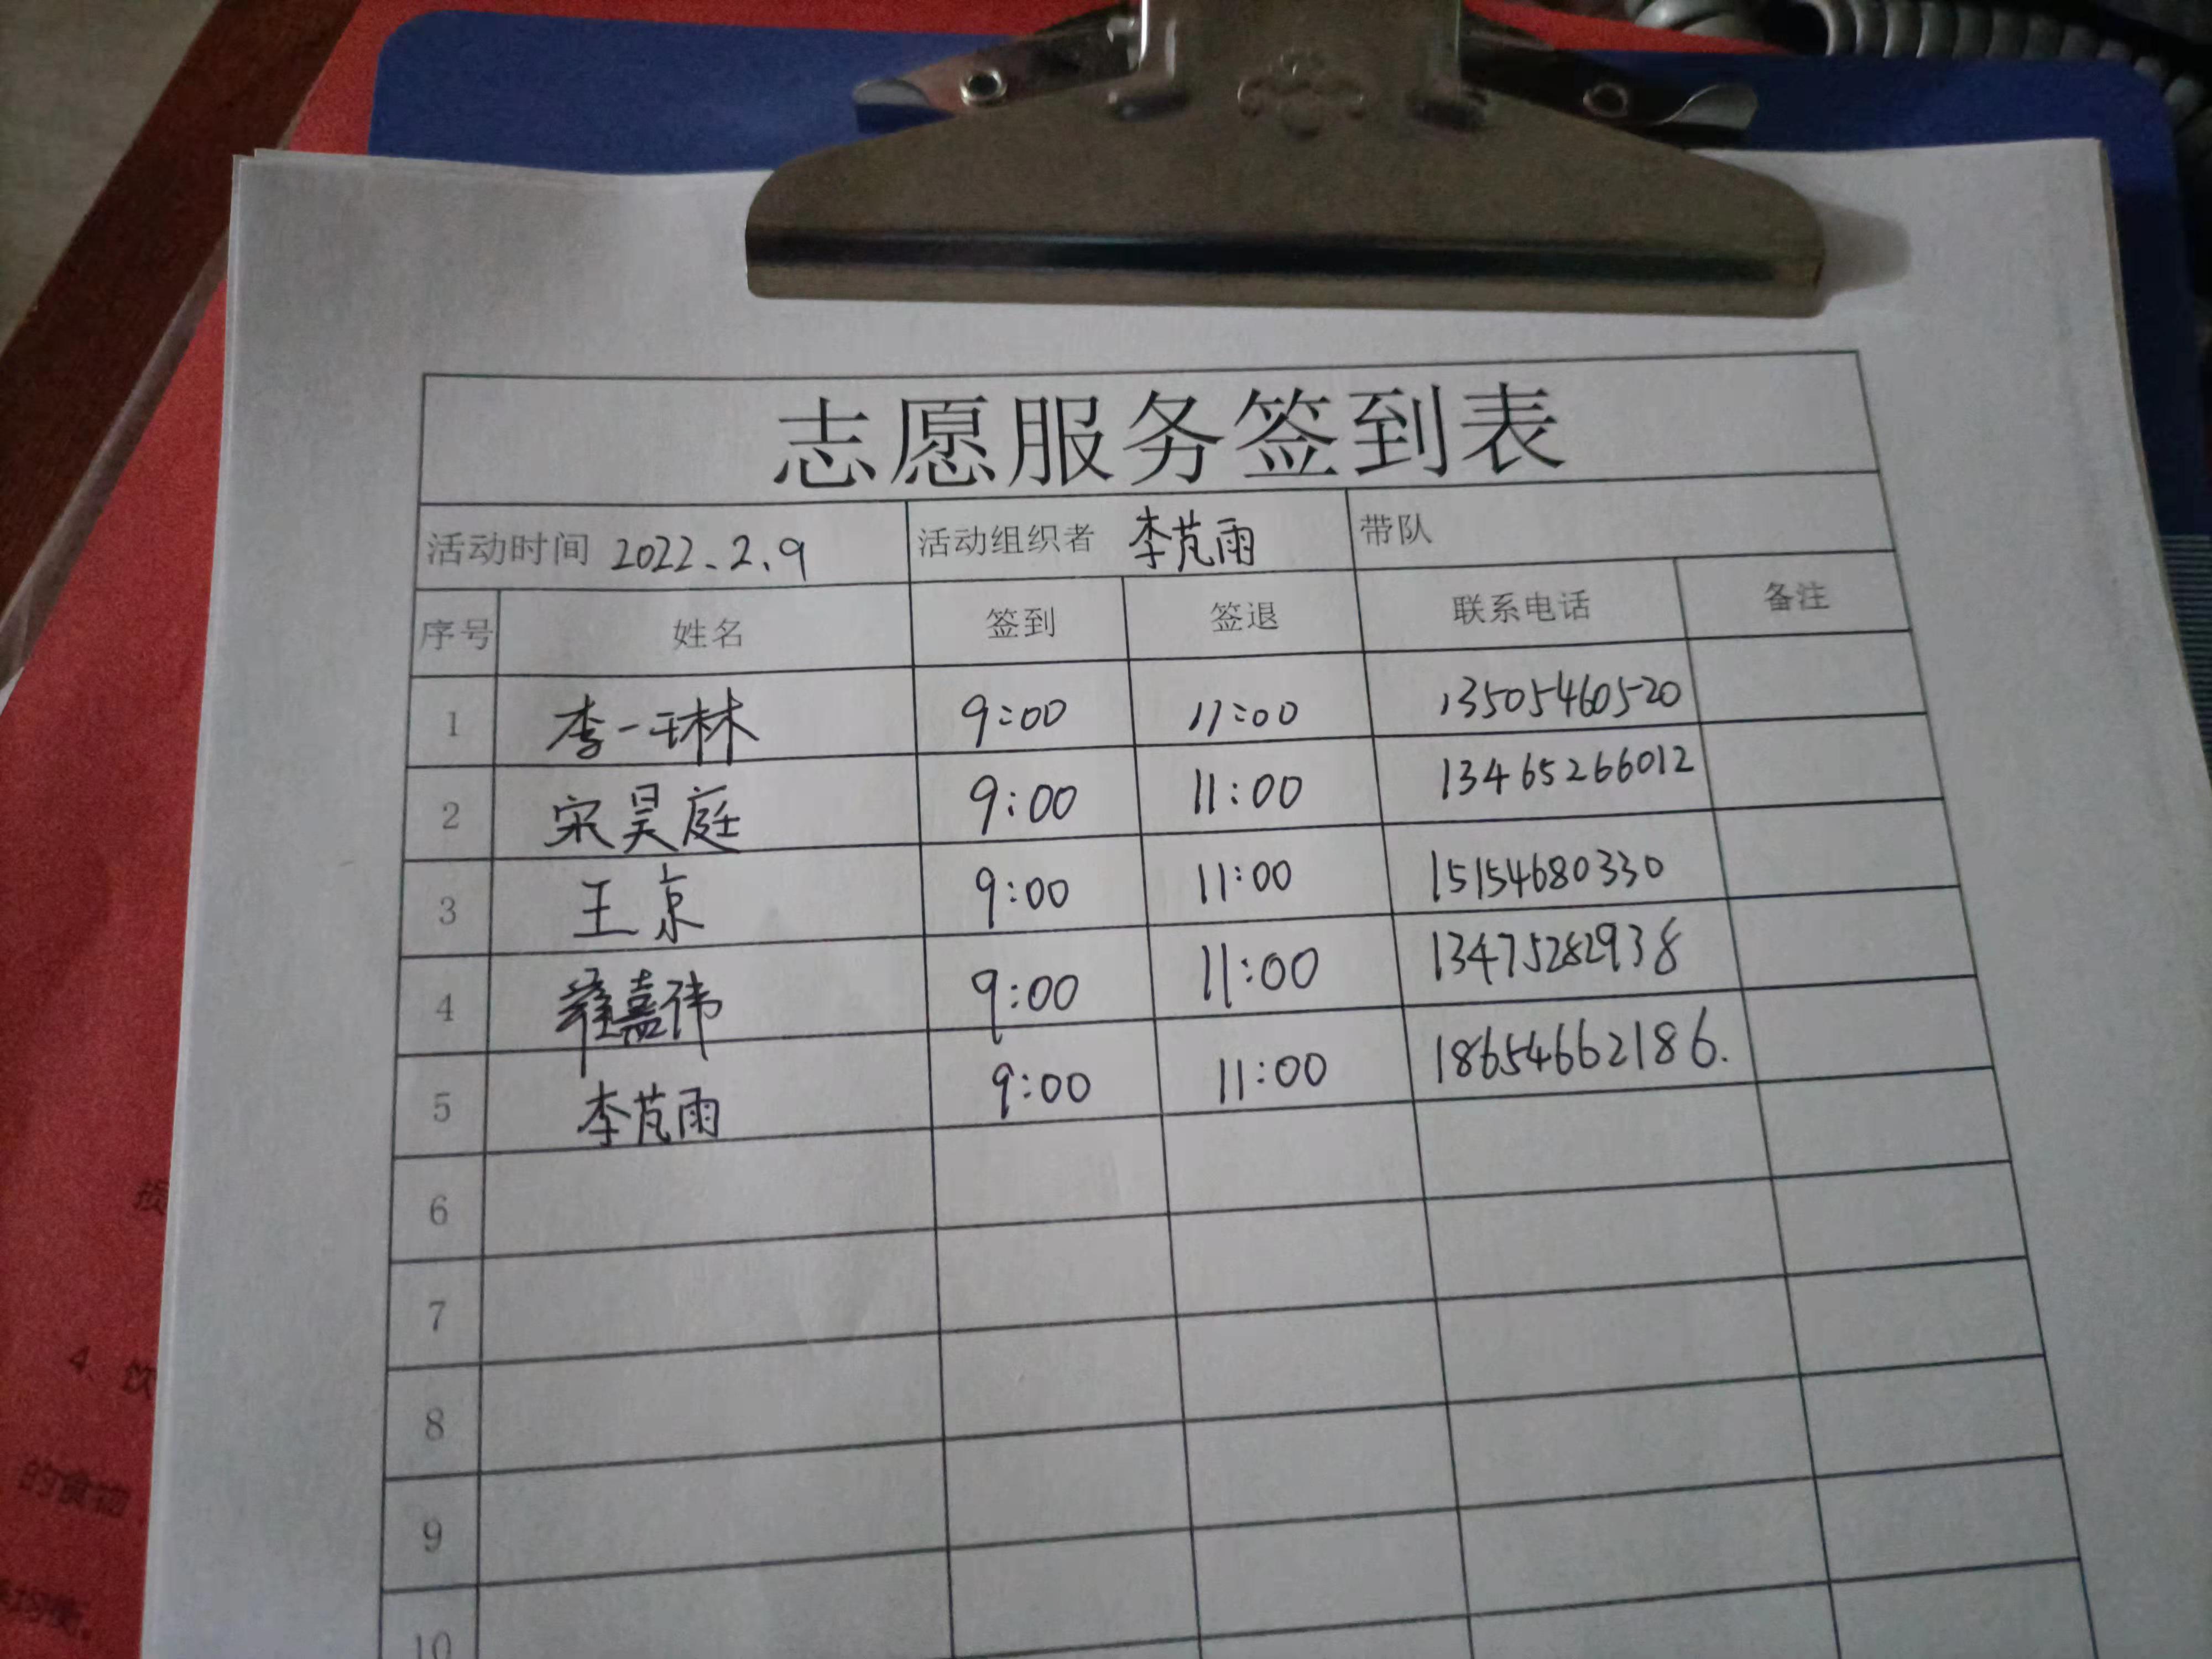 志愿服务签到表
活动时间 2022.2.9 活动组织者 李芃雨 带队
序号 姓名 签到 签退 联系电话 备注
1 李一琳 9:00 11:00 13505460520
2 宋昊庭 9:00 11:00 13465266012
3 王京 9:00 11:00 15154680330
4 嘉伟 9:00 11:00 13475282938
5 李芃雨 9:00 11:00 18654662186.
6
7
8
9
10
4、饮
的食物